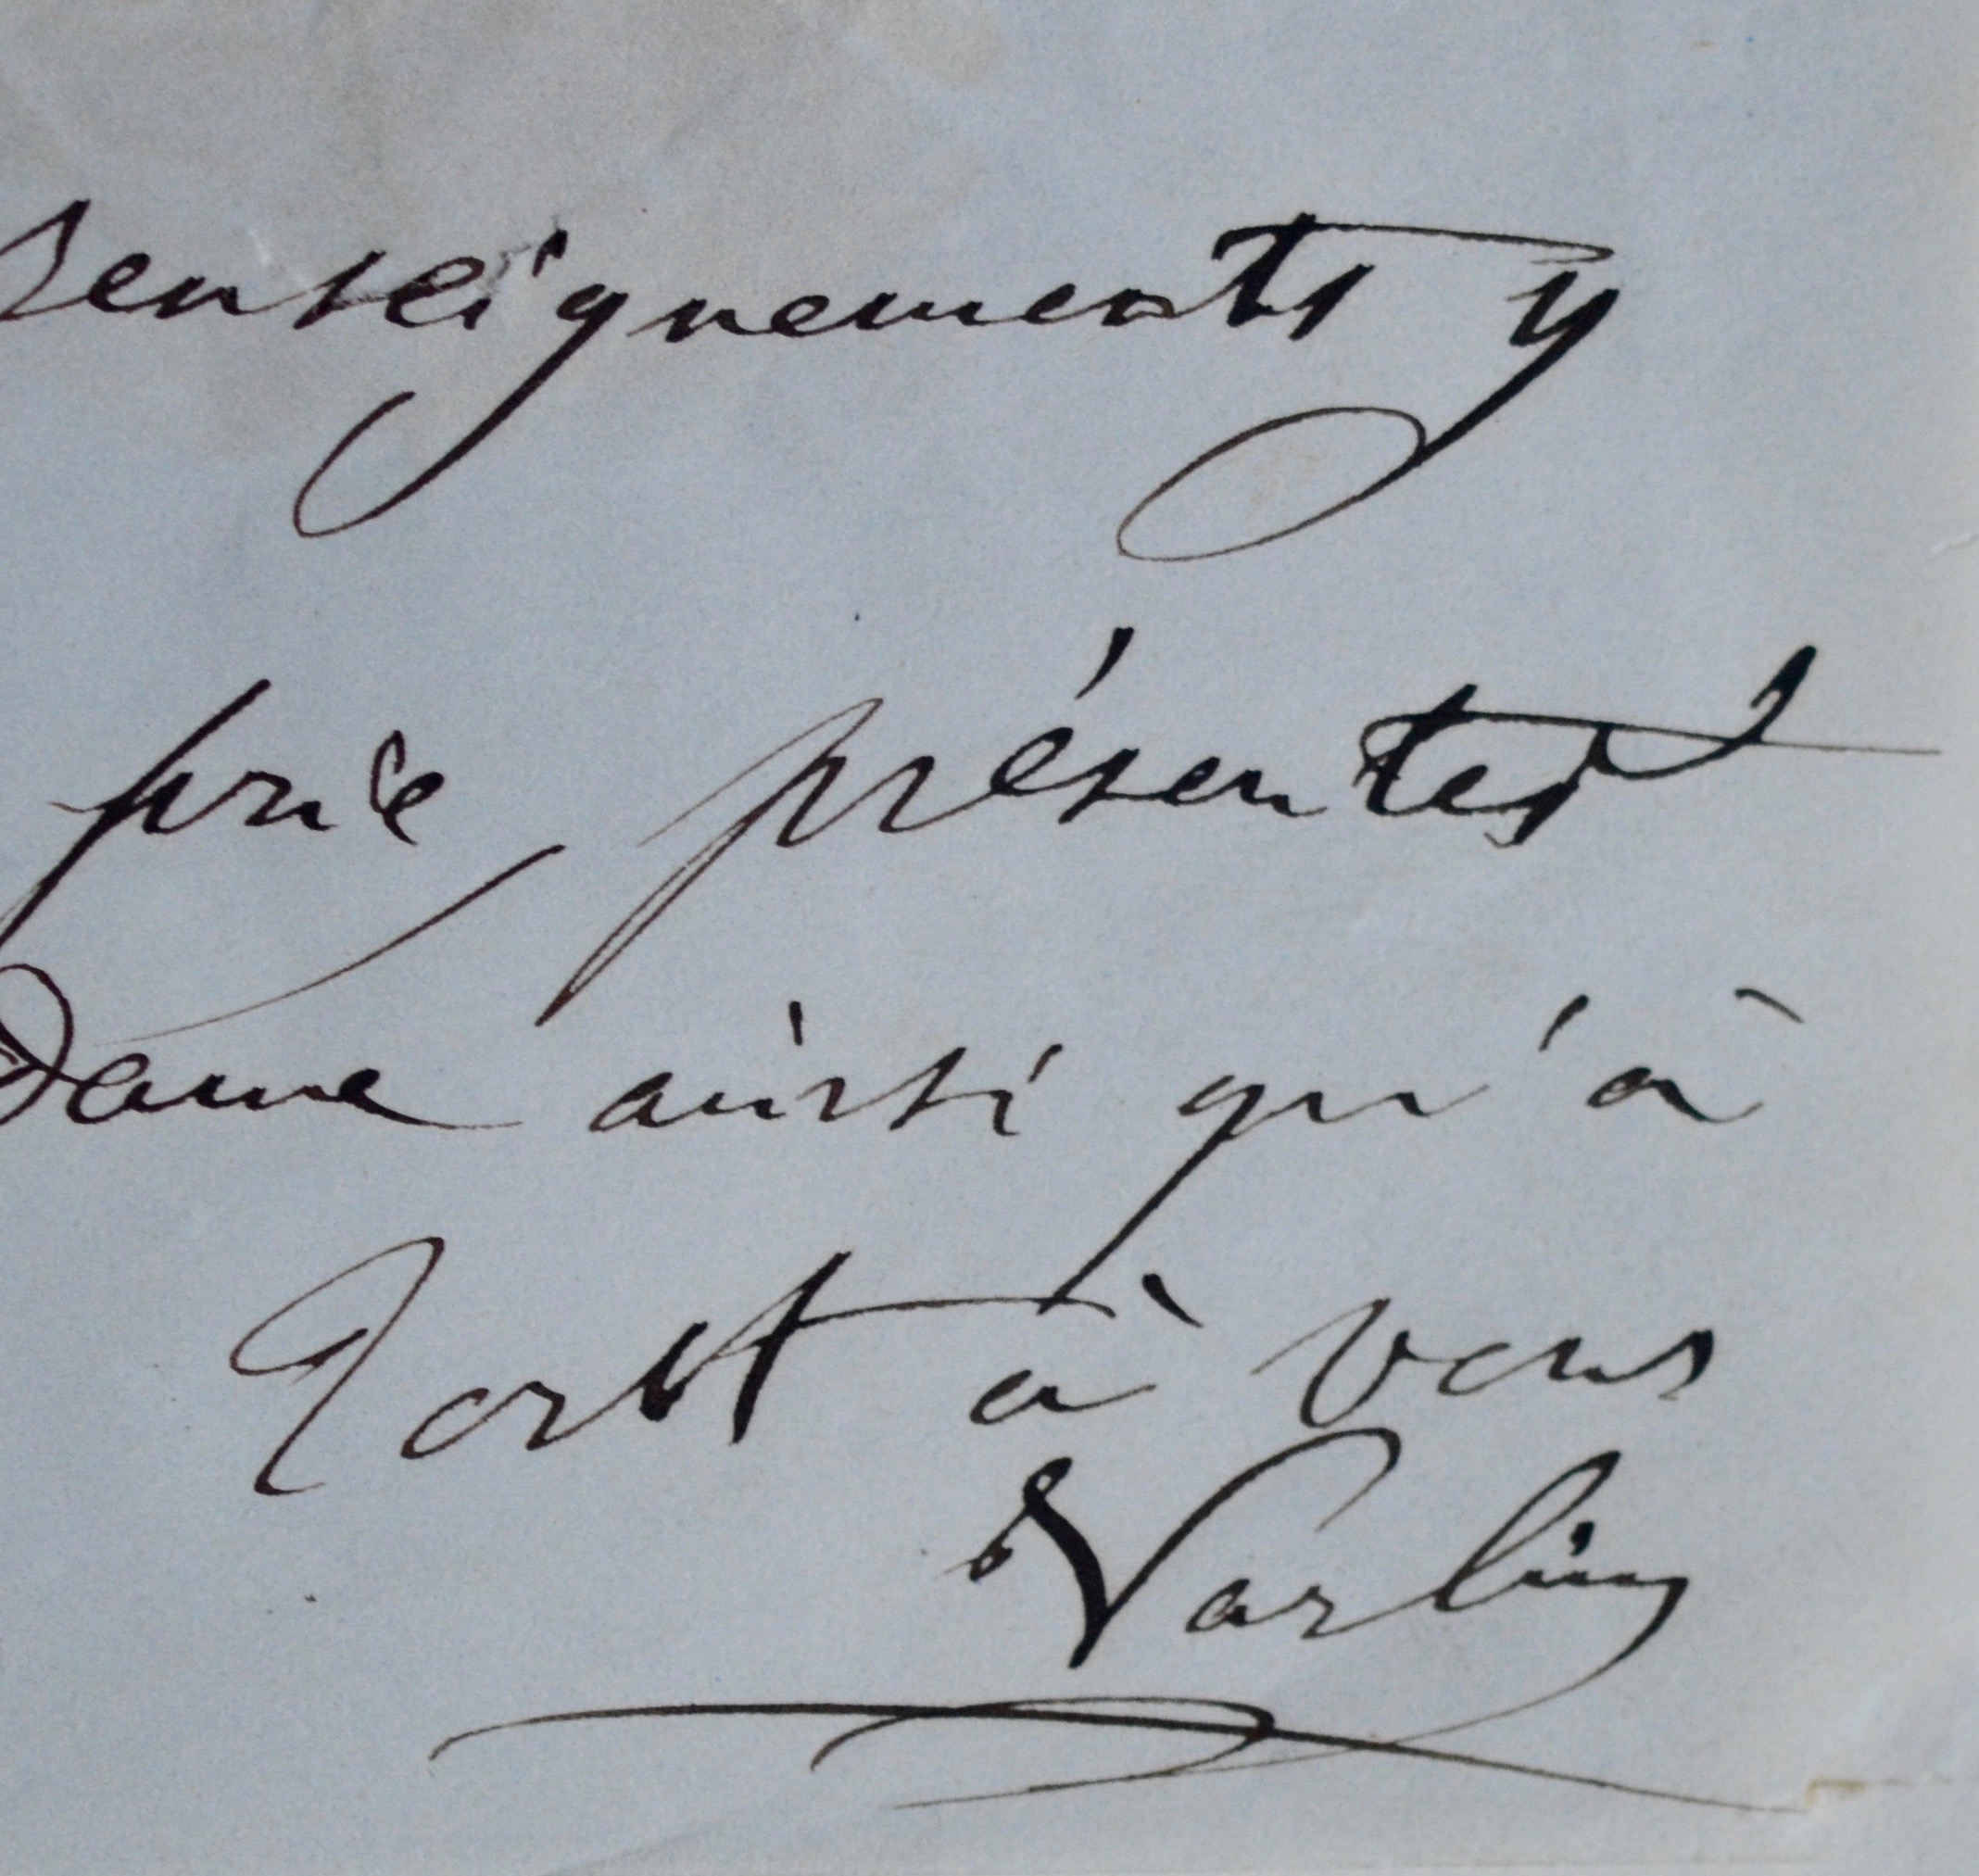 renseignements y
prie, présenter
dame ainsi qu'à
Tout à vous
Varlin